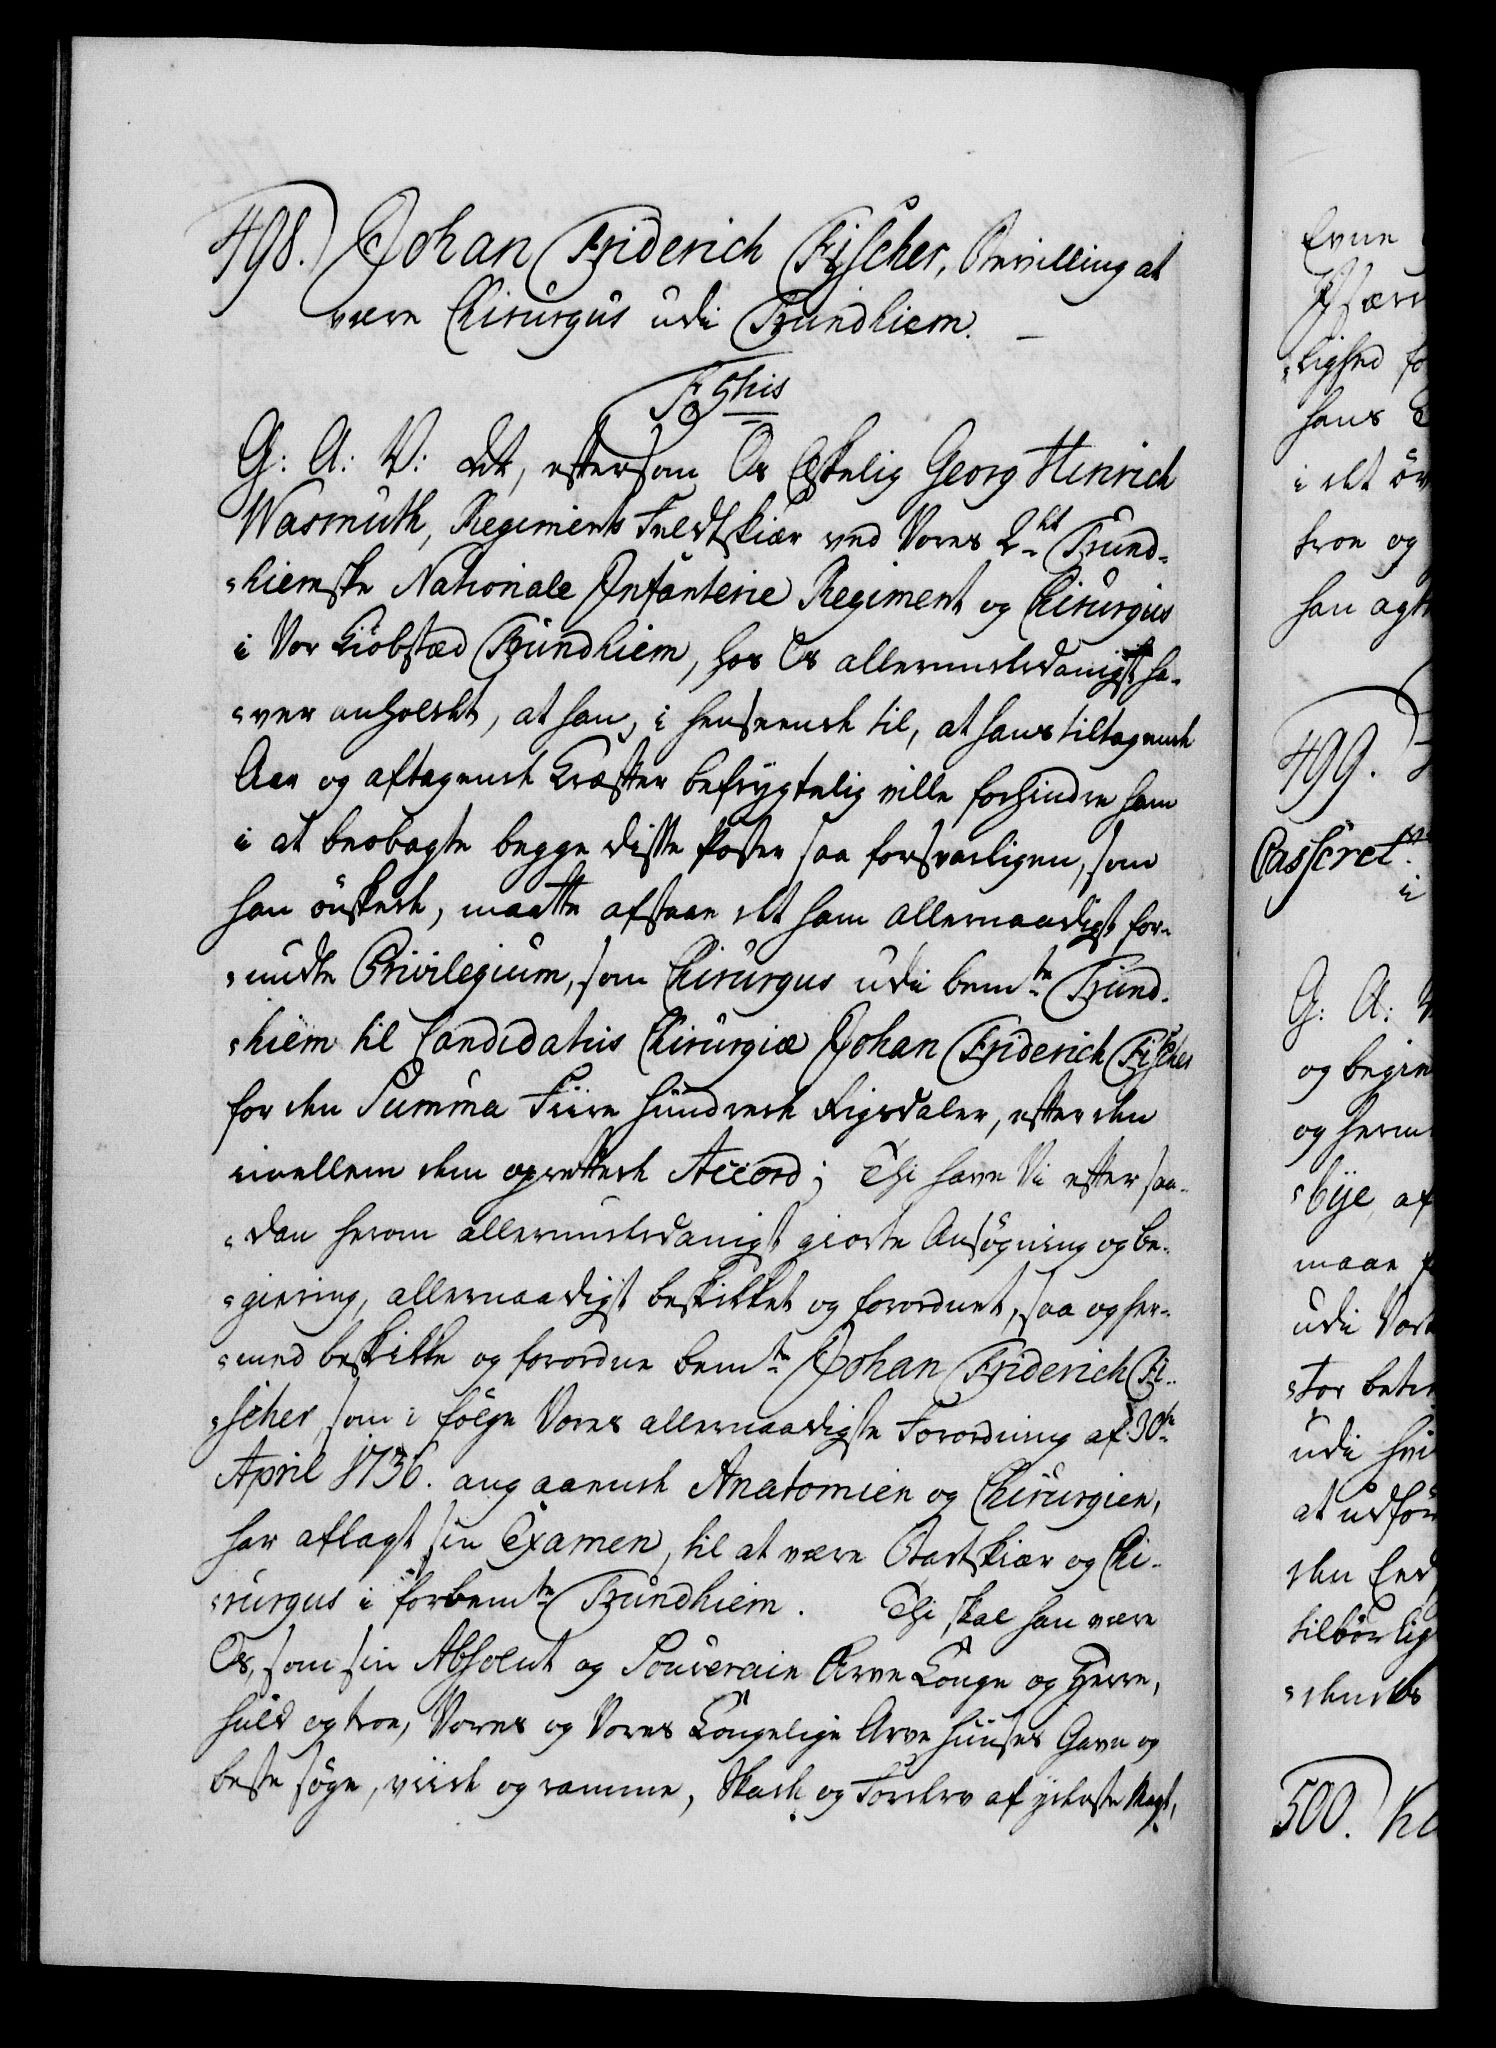 498. Johan Friderich Fischer, Bevilling at
være Chirurgus udi Trundhiem. –
F 5this
G: A: V: Ldt, eftersom Os Elskelig Georg Hinrich
Wasmuth, Regiments Feldtskiær ved Vores 2det Trund-
hiemske Nationale Infanterie Regiment og Chirurgus
i Vor Kiøbstæd Trundhiem, hos Os allerunderdanigst ha-
ver anholdet, at han, i henseende til, at hans tiltagende
Aar og aftagende Kræfter befrygtelig ville forhindre ham
i at beobagte begge disse Poster saa forsvarligen, som
han ønskede, maatte afstaae det ham allernaadigst for-
undte Privilegium, som Chirurgus udi bemte Trund-
hiem til Candidatus Chirurgiæ Johan Friderich Fischer
for den Summa Fiire Hundrede Rigsdaler, efter den
imellem dem oprettede Accord; Thi have Vi efter saa-
dan herom allerunderdanigst giorte Ansøgning og be-
giering, allernaadigst beskikket og forordnet, saa og her-
med beskikke og forordne bemte Johan Friderich Fi-
scher, som i følge Vores allernaadigste Forordning af 30te
April 1736. angaaende Anatomien og Chirurgien,
har aflagt sin Examen, til at være Bartskiær og Chi-
rurgus i forbemte Trundhiem. Thi skal han være
Os, som sin Absolut og Souverain Arve Konge og Herre,
huld og troe, Vores og Vores Kongelige Arve Huuses Gavn og
beste søge, viide og ramme, Skade og Fordærv af yderste Magt,
Evne
lighed fo
hans
i det øv
troe og
han agt
499.
Casseret
i
G: A: V
og begie
og herm
bye, af
maae
udi Vor
tor bet
udi hvi
at udfør
den Eed
tilbørlig
dendes
500. Kl